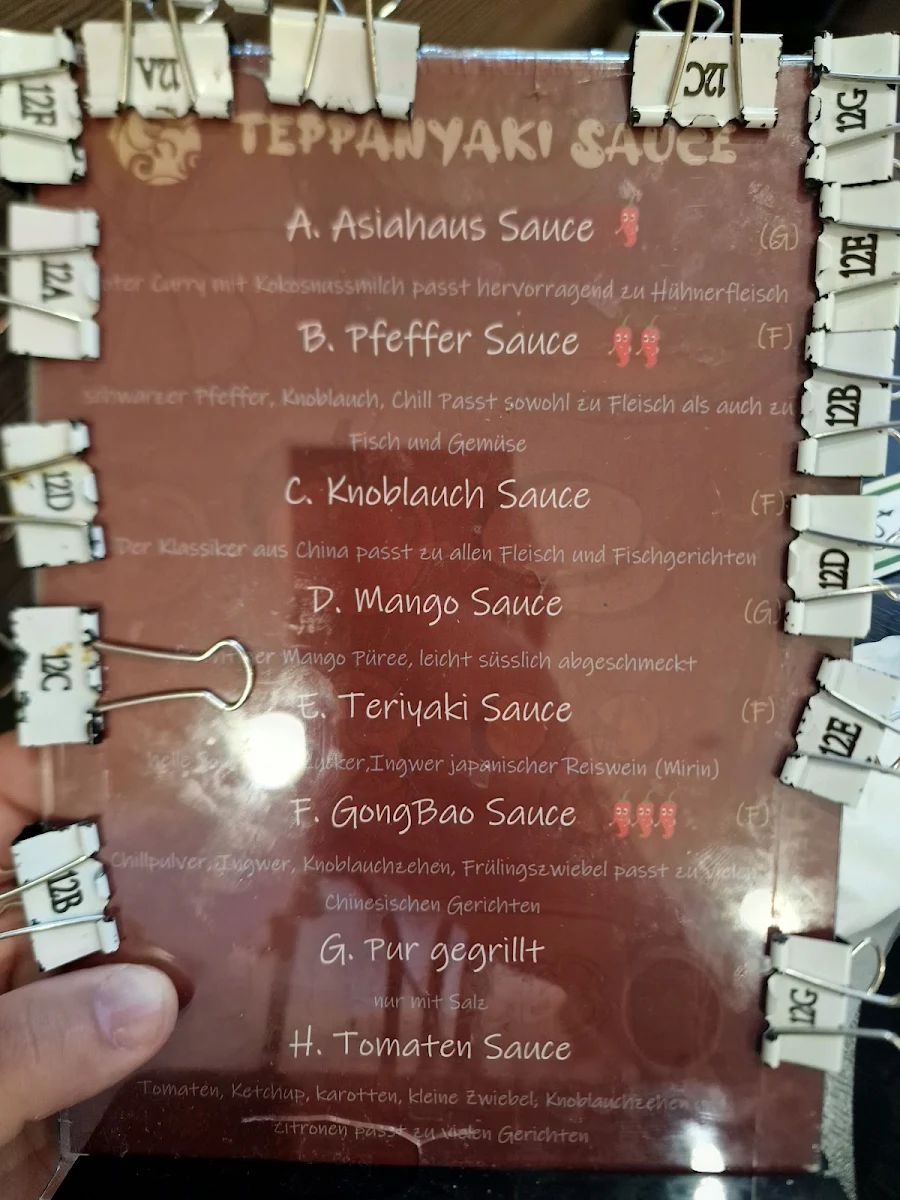 12A
12C
12F
12G
TEPPANYAKI SAUCE
A. Asiahaus Sauce (G)
12A
12E
Curry mit Kokosnussmilch passt hervorragend zu Hühnerfleisch
B. Pfeffer Sauce (F)
schwarzer Pfeffer, Knoblauch, Chill Passt sowohl zu Fleisch als auch zu
12B
Fisch und Gemüse
12D
C. Knoblauch Sauce (F)
Der Klassiker aus China passt zu allen Fleisch und Fischgerichten
12D
D. Mango Sauce (G)
12C
Mango Püree, leicht süsslich abgeschmeckt
E. Teriyaki Sauce (F)
12E
Zucker,Ingwer japanischer Reiswein (Mirin)
F. GongBao Sauce (F)
Chillpulver, Ingwer, Knoblauchzehen, Frülingszwiebel passt zu vielen
12B
Chinesischen Gerichten
G. Pur gegrillt
nur mit Salz
12G
H. Tomaten Sauce
Tomaten, Ketchup, karotten, kleine Zwiebel, Knoblauchzehen
Zitronen passt zu vielen Gerichten